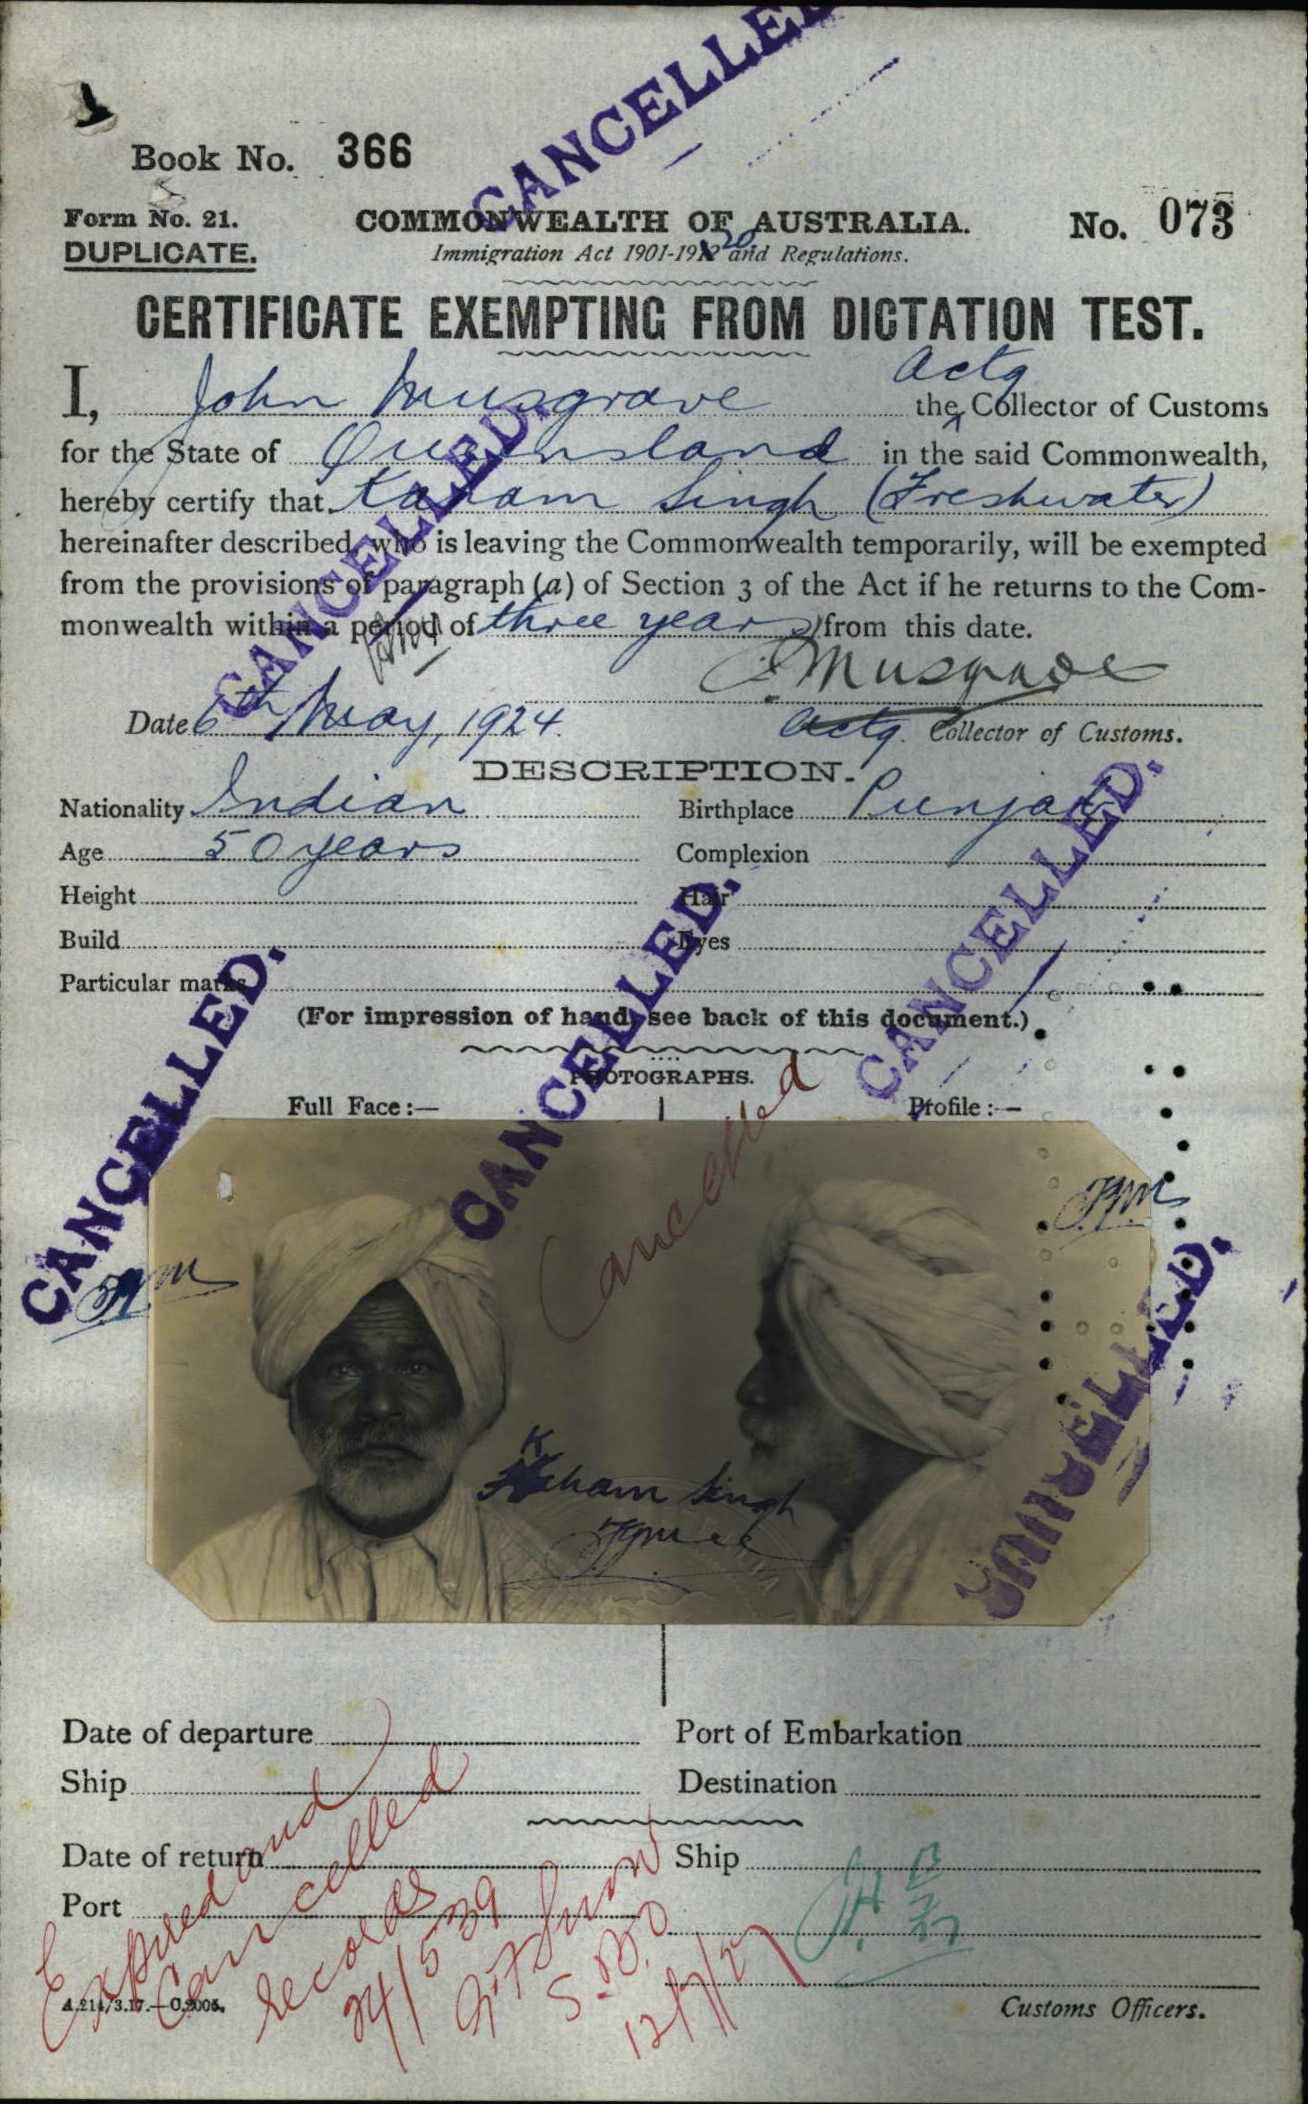 CANCELLED.
Book No. 366
Form No. 21.
DUPLICATE.
COMMONWEALTH OF AUSTRALIA.
No. 073
Immigration Act 1901-1912 20 and Regulations.
CERTIFICATE EXEMPTING FROM DICTATION TEST.
I, John Musgrave the Actg Collector of Customs
for the State of Queensland in the said Commonwealth,
hereby certify that Karam Singh (Freshwater)
hereinafter described, who is leaving the Commonwealth temporarily, will be exempted
from the provisions of paragraph (a) of Section 3 of the Act if he returns to the Com-
monwealth within a period of three years from this date.
CANCELLED.
Musgrave
Date 6th May, 1924.
Actg. Collector of Customs.
DESCRIPTION.
Nationality Indian
Birthplace Punjab
Age 50 years
Complexion
Height
Hair
Build
Eyes
Particular marks
(For impression of hand, see back of this document.)
CANCELLED.
CANCELLED.
CANCELLED.
PHOTOGRAPHS.
Full Face :—
Profile :—
Cancelled
Singh
CANCELLED.
Date of departure
Port of Embarkation
Ship
Destination
Date of return
Ship
Port
Expired and
Cancelled
records
24/539
S.B.O
12/7/27
A.214/3.17.—C.2005.
Customs Officers.